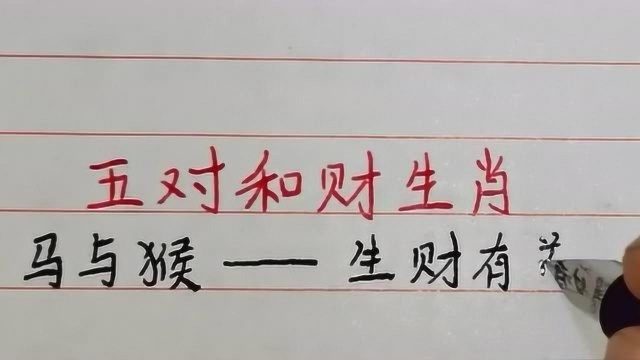 五对和财生肖
马与猴——生财有